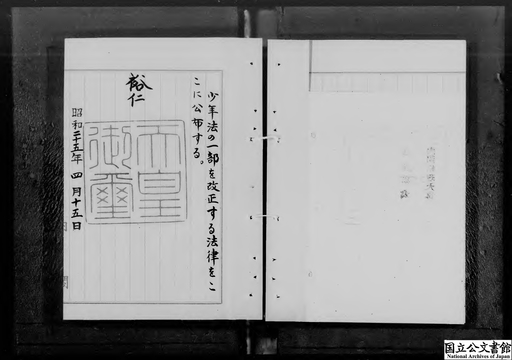 少年法の一部を改正する法律をこ
こに公布する。
裕仁
天皇
御璽
昭和二十五年四月十五日
国立公文書館
National Archives of Japan